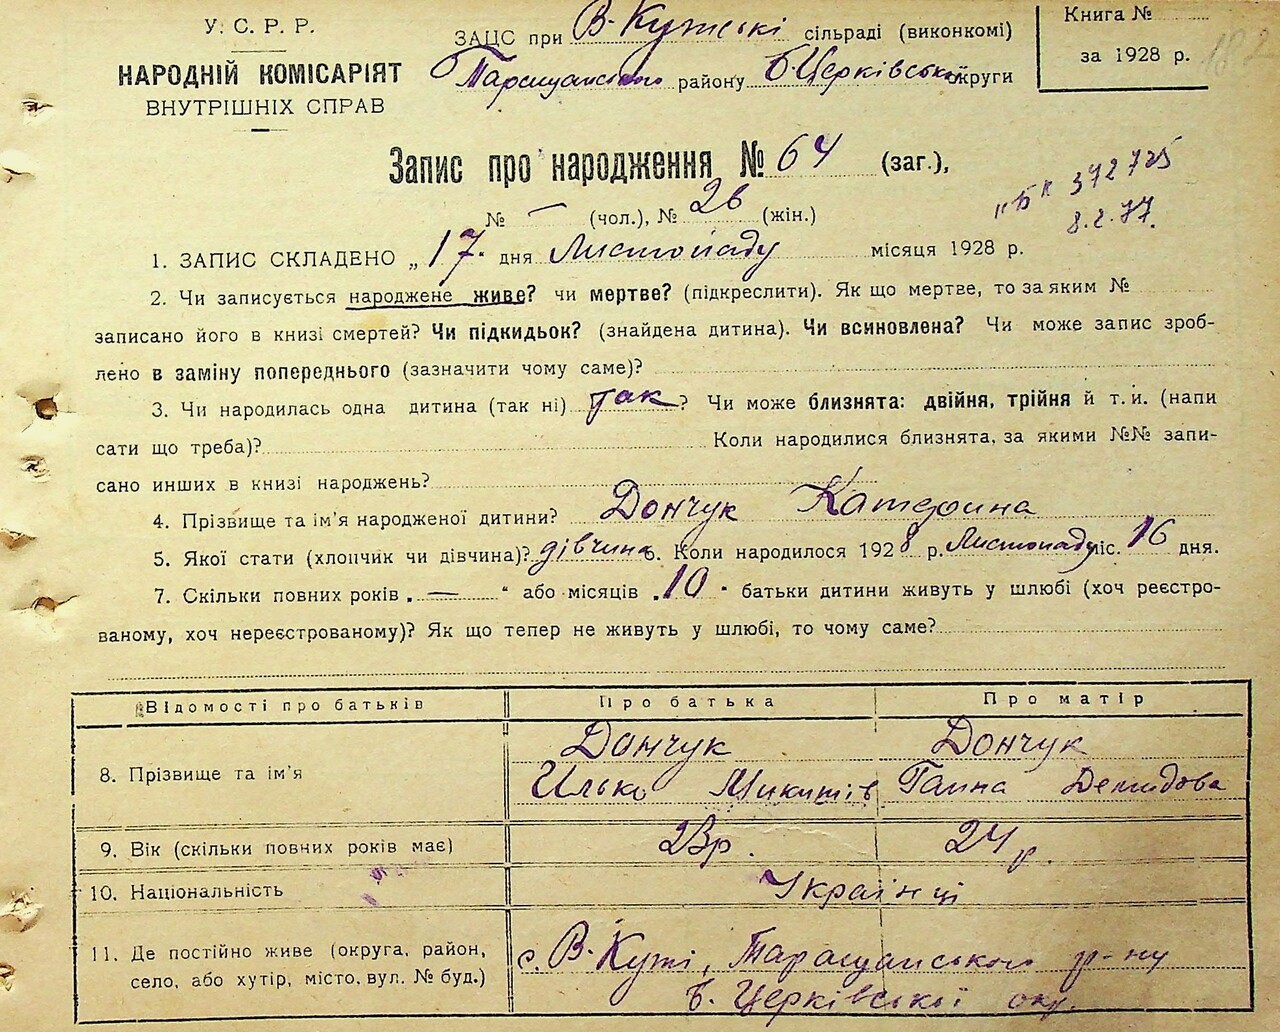 У. С. Р. Р.
НАРОДНІЙ КОМІСАРІЯТ
ВНУТРІШНІХ СПРАВ
ЗАЦС при В-Кужські сільраді (виконкомі)
Таращанського району Б Церківської округи
Книга №
за 1928 р. 182
Запис про народження № 64 (заг.),
№ — (чол.), № 26 (жін.)
"БК 372725
8.2.77.
1. ЗАПИС СКЛАДЕНО „17. дня Листопаду місяця 1928 р.
2. Чи записується народжене живе? чи мертве? (підкреслити). Як що мертве, то за яким №
записано його в книзі смертей? Чи підкидьок? (знайдена дитина). Чи всиновлена? Чи може запис зроб-
лено в заміну попереднього (зазначити чому саме)?
3. Чи народилась одна дитина (так ні) так? Чи може близнята: двійня, трійня й т. и. (напи
сати що треба)? Коли народилися близнята, за якими №№ запи-
сано инших в книзі народжень?
4. Прізвище та ім'я народженої дитини? Дончук Катерина
5. Якої стати (хлопчик чи дівчина)? дівчина 6. Коли народилося 1928 р. Листопаду міс. 16 дня.
7. Скільки повних років „ — " або місяців „10" батьки дитини живуть у шлюбі (хоч реєстро-
ваному, хоч нереєстрованому)? Як що тепер не живуть у шлюбі, то чому саме?
Відомості про батьків Про батька Про матір
8. Прізвище та ім'я Дончук Илько Микитів Дончук Ганна Демидова
9. Вік (скільки повних років має) 23р. 24р.
10. Національність Українці
11. Де постійно живе (округа, район,
село, або хутір, місто, вул. № буд.) с. В-Кужі, Таращанського р-ну
Б. Церківської окр.